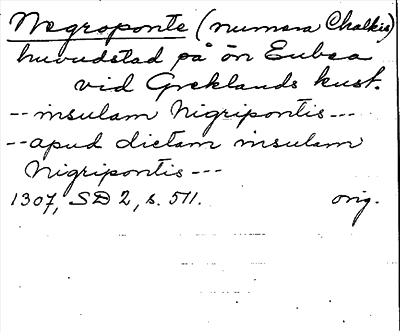 Negroponte (numera Chalkis)
huvudstad på ön Eubea
vid Greklands kust.
-- insulam Nigripontis ---
-- apud dictam insulam
Nigripontis ---
1307, SD 2, s. 511. orig.